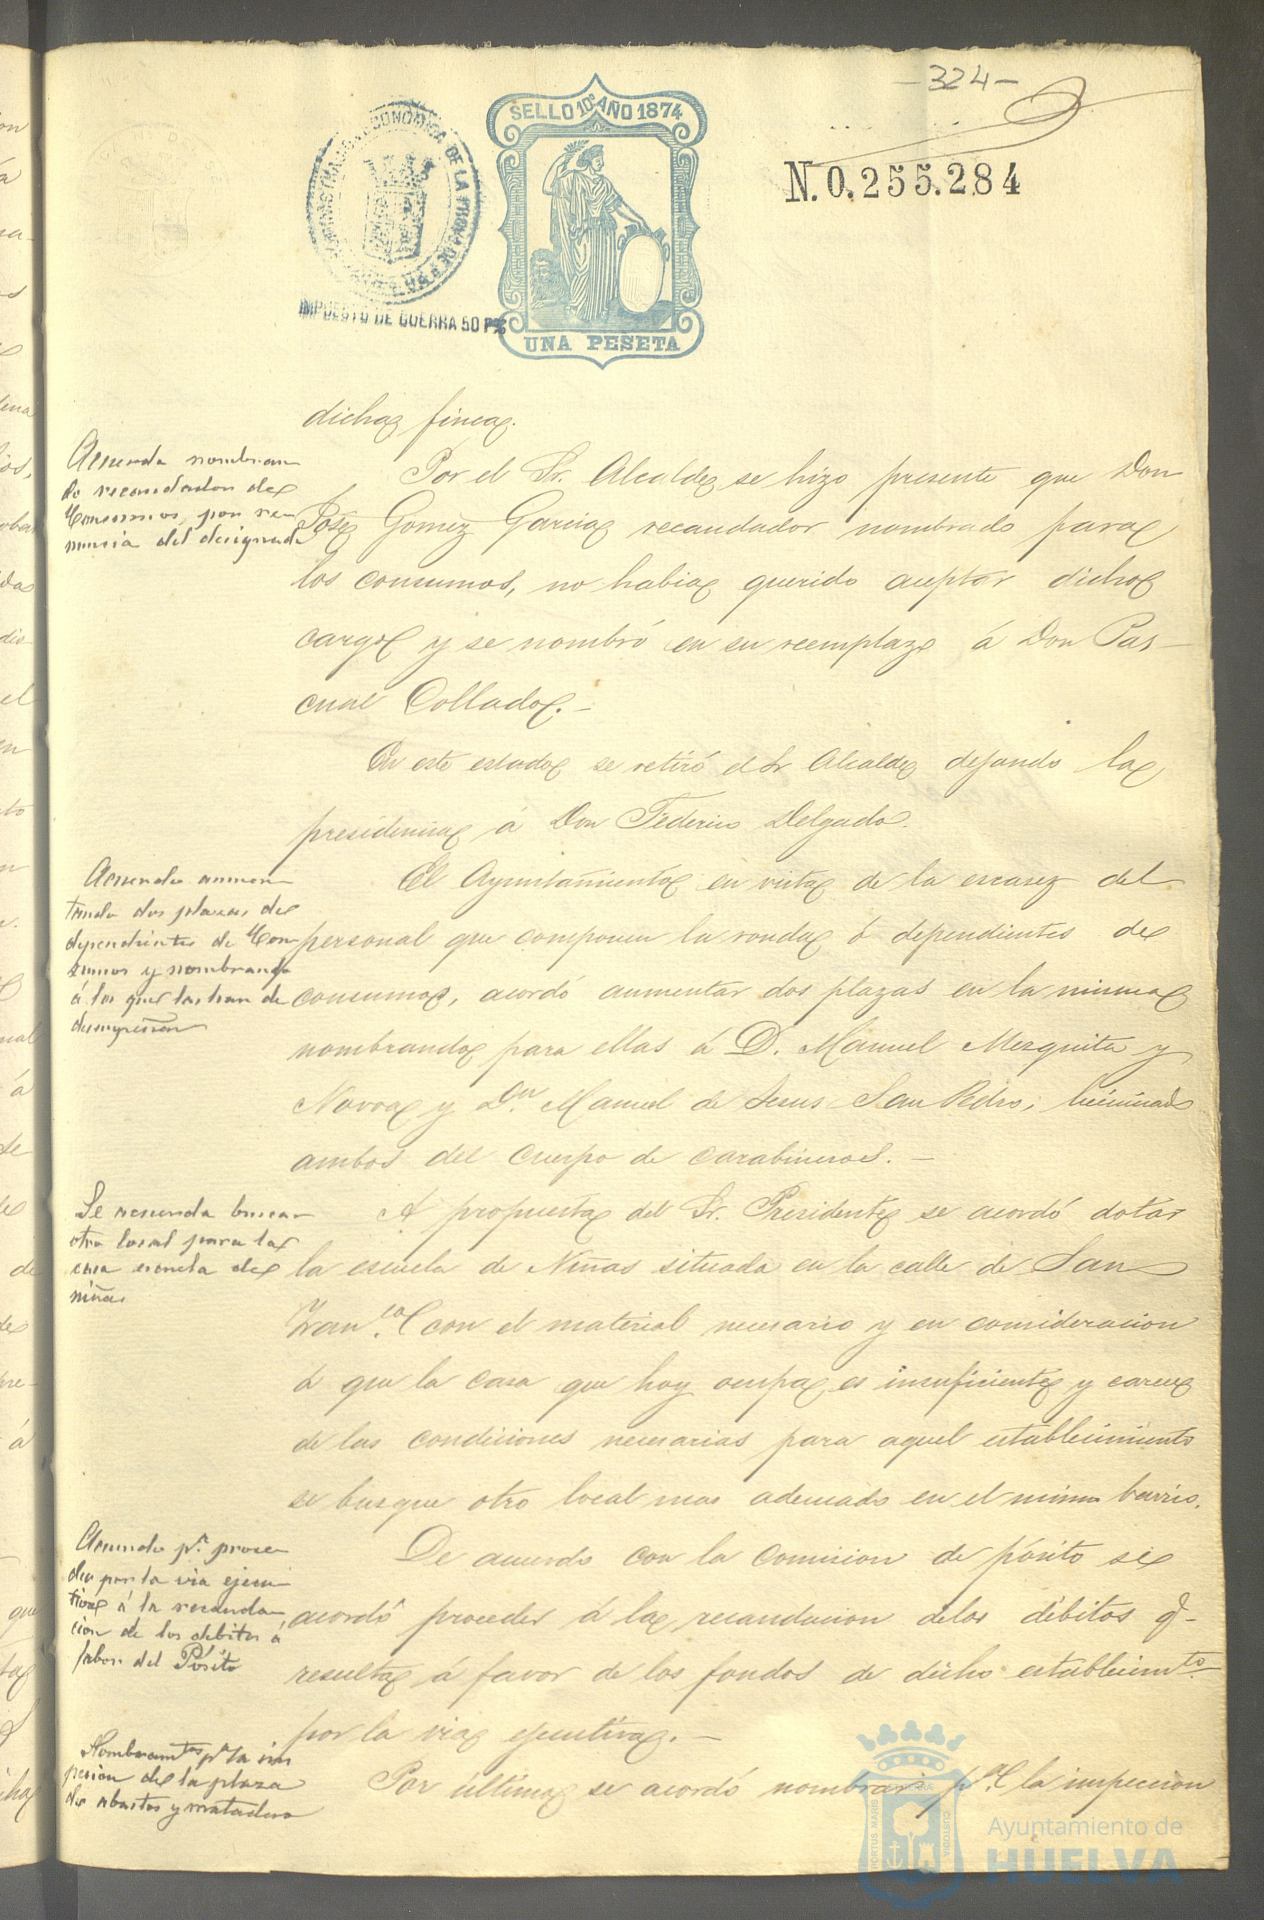 -324-
SELLO 10º AÑO 1874
N. 0.255.284
IMPUESTO DE GUERRA 50 P%
UNA PESETA
dichas fincas.
Acuerdo nombran-
do recaudador de
Consumos, por re-
nuncia del designado
Por el Sr. Alcalde se hizo presente que Don
José Gomez Garcia recaudador nombrado para
los consumos, no habia querido aceptar dicho
cargo y se nombró en su reemplazo á Don Pas-
cual Collado.-
En este estado se retiró el Sr Alcalde dejando la
presidencia á Don Federico Delgado.
Acuerdo aumen-
tando dos plazas de
dependientes de Con-
sumos y nombrando
á los que las han de
desempeñar
El Ayuntamiento en vista de la escasez del
personal que componen la ronda ó dependientes de
consumos, acordó aumentar dos plazas en la misma
nombrando para ellas á D. Manuel Mezquita y
Novoa y Dn. Manuel de Jesus San Pedro, licenciado
ambos del cuerpo de carabineros.-
Se acuerda buscar
otro local para la
casa escuela de
niñas
A propuesta del Sr. Presidente se acordó dotar
la escuela de Niñas situada en la calle de San
Franco. con el material necesario y en consideracion
á que la casa que hoy ocupa es insuficiente y carece
de las condiciones necesarias para aquel establecimiento
se busque otro local mas adecuado en el mismo barrio.
Acuerdo pa. proce-
der por la via ejecu-
tiva á la recauda-
cion de los debitos á
fabor del Pósito
De acuerdo con la comision de pósito se
acordó proceder á la recaudacion delos débitos q-
resulta á favor de los fondos de dicho establecimto.
por la via ejecutiva.-
Nombramtos pa la ins
peccion de la plaza
de abastos y matadero
Por último se acordó nombrar pa. la inspeccion
PORTUS MARIS
CUSTODIA
Ayuntamiento de
HUELVA